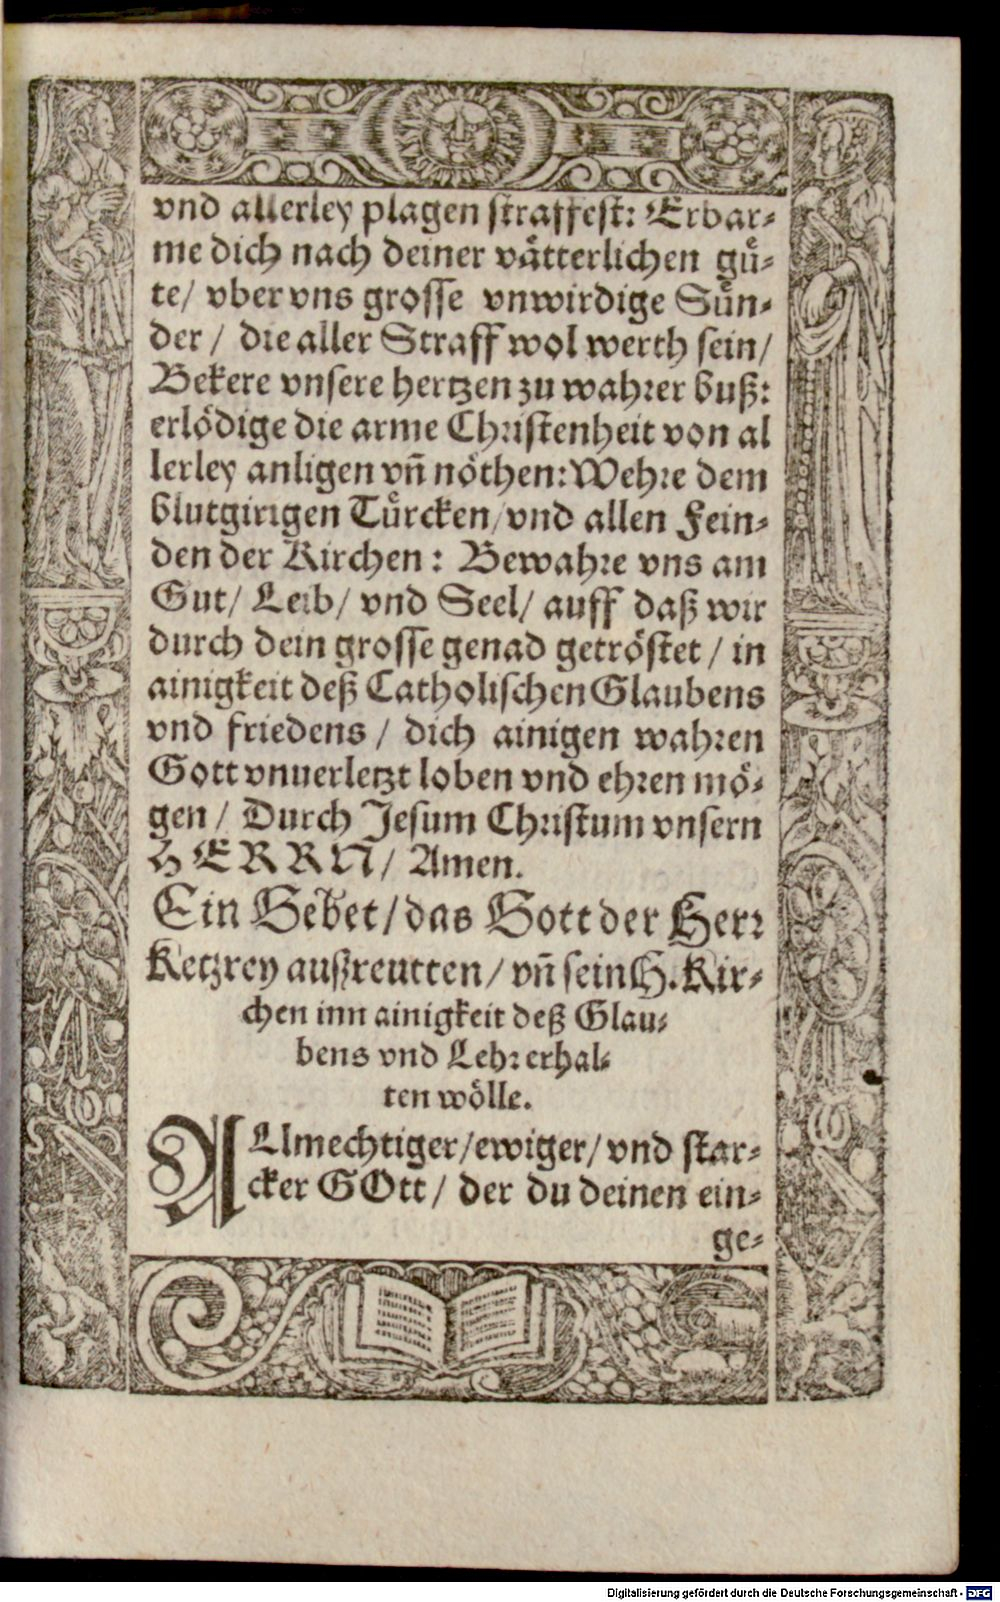 vnd allerley plagen straffest: Erbar⸗
me dich nach deiner vaͤtterlichen guͤ⸗
te/ vber vns grosse vnwirdige Suͤn⸗
der / die aller Straff wol werth sein/
Bekere vnsere hertzen zu wahrer buß:
erlödige die arme Christenheit von al
lerley anligen vñ nöthen: Wehre dem
blutgirigen Tuͤrcken/ vnd allen Fein⸗
den der Kirchen: Bewahre vns am
Gut/ Leib/ vnd Seel/ auff daß wir
durch dein grosse genad getröstet / in
ainigkeit deß Catholischen Glaubens
vnd friedens / dich ainigen wahren
Gott vnuerletzt loben vnd ehren mö⸗
gen / Durch Jesum Christum vnsern
HERRN/ Amen.
Ein Gebet/ das Gott der Herr
Ketzrey außreutten/ vñ sein H. Kir⸗
chen inn ainigkeit deß Glau⸗
bens vnd Lehr erhal⸗
ten wölle.
ALmechtiger/ ewiger/ vnd star⸗
cker GOtt/ der du deinen ein⸗
ge⸗
Digitalisierung gefördert durch die Deutsche Forschungsgemeinschaft - DFG